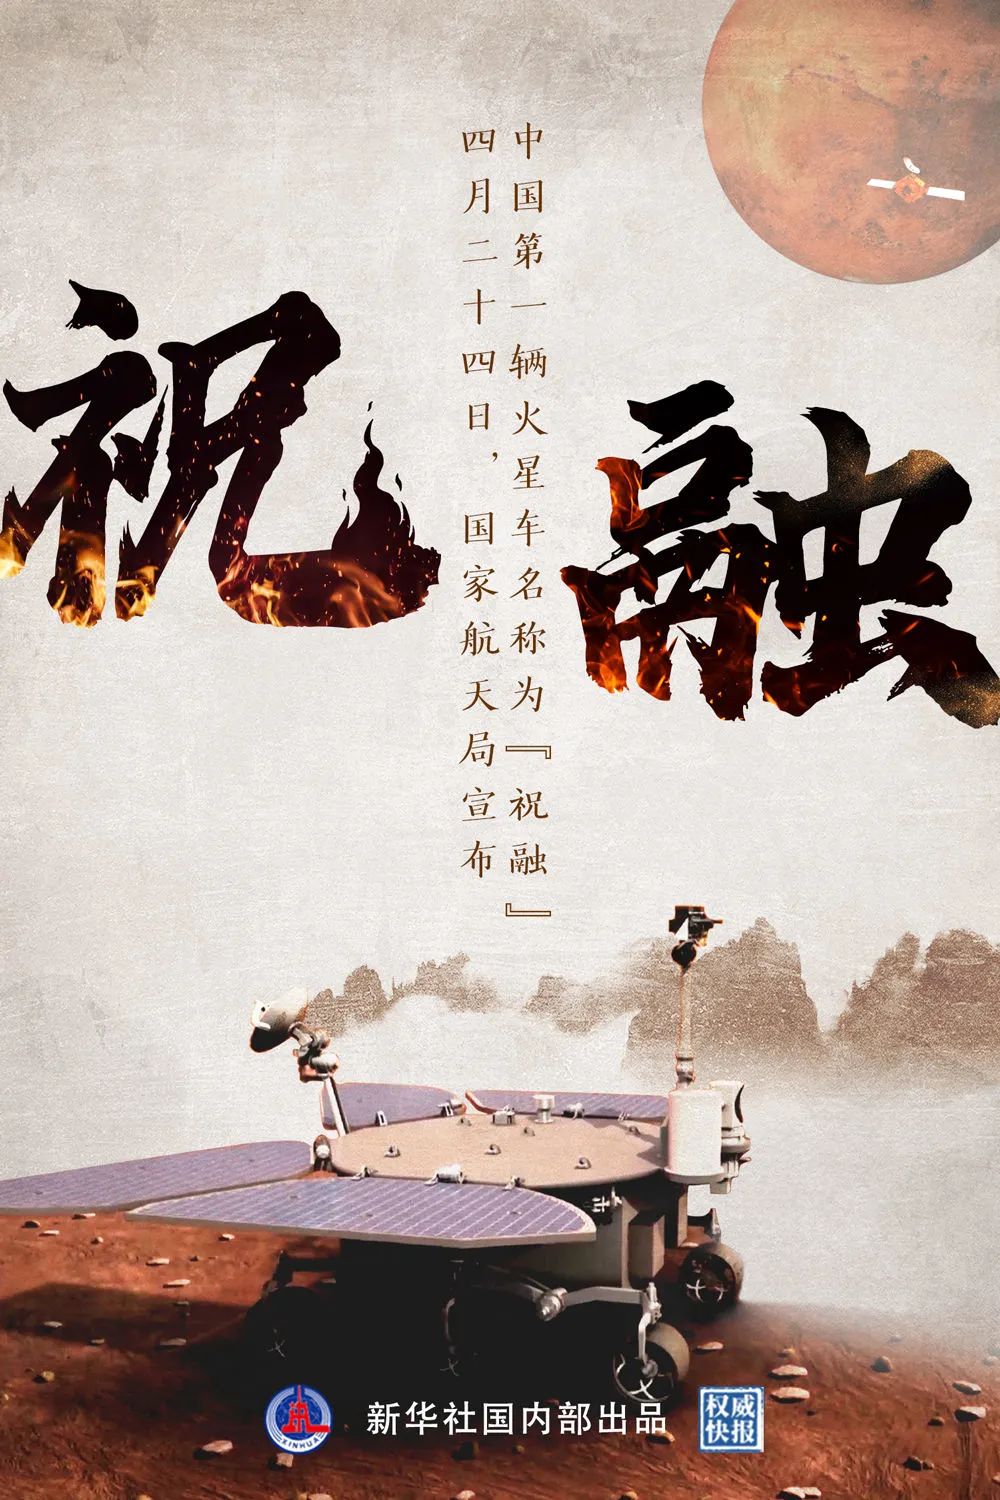 祝融
四月二十四日，国家航天局宣布
中国第一辆火星车名称为『祝融』
XINHUA
新华社国内部出品
权威
快报